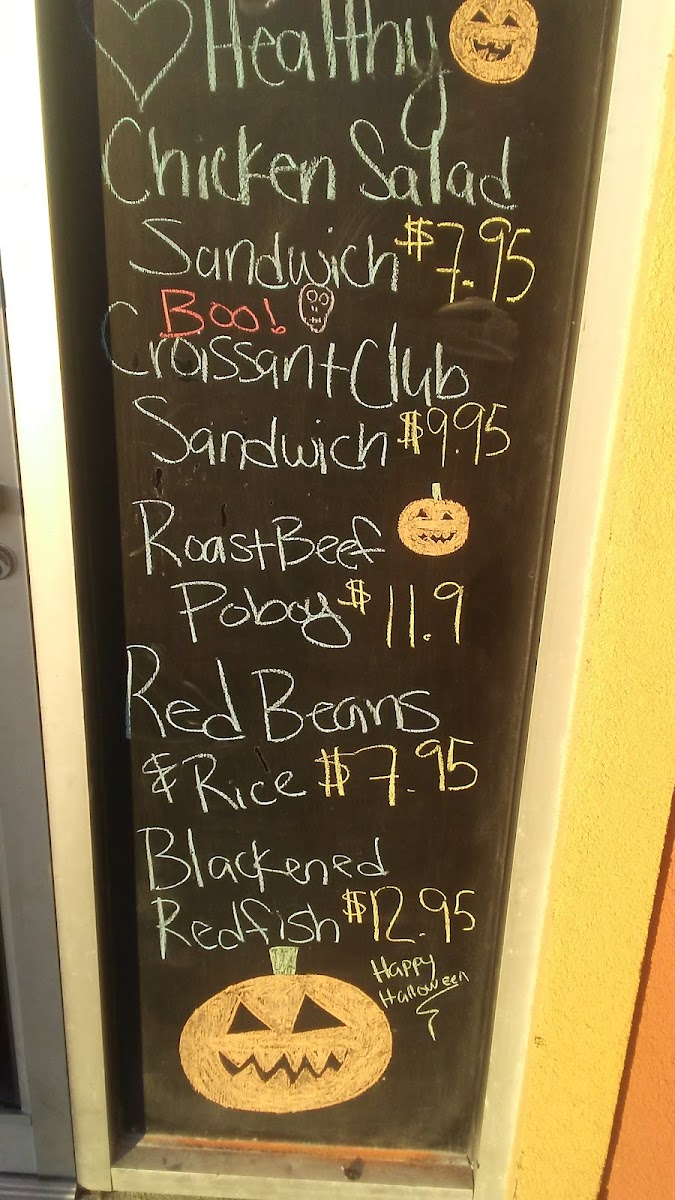 Healthy
Chicken Salad
Sandwich $7.95
Boo!
Croissant Club
Sandwich $9.95
Roast Beef
Poboy $11.9
Red Beans
& Rice $7.95
Blackened
Redfish $12.95
Happy
Halloween